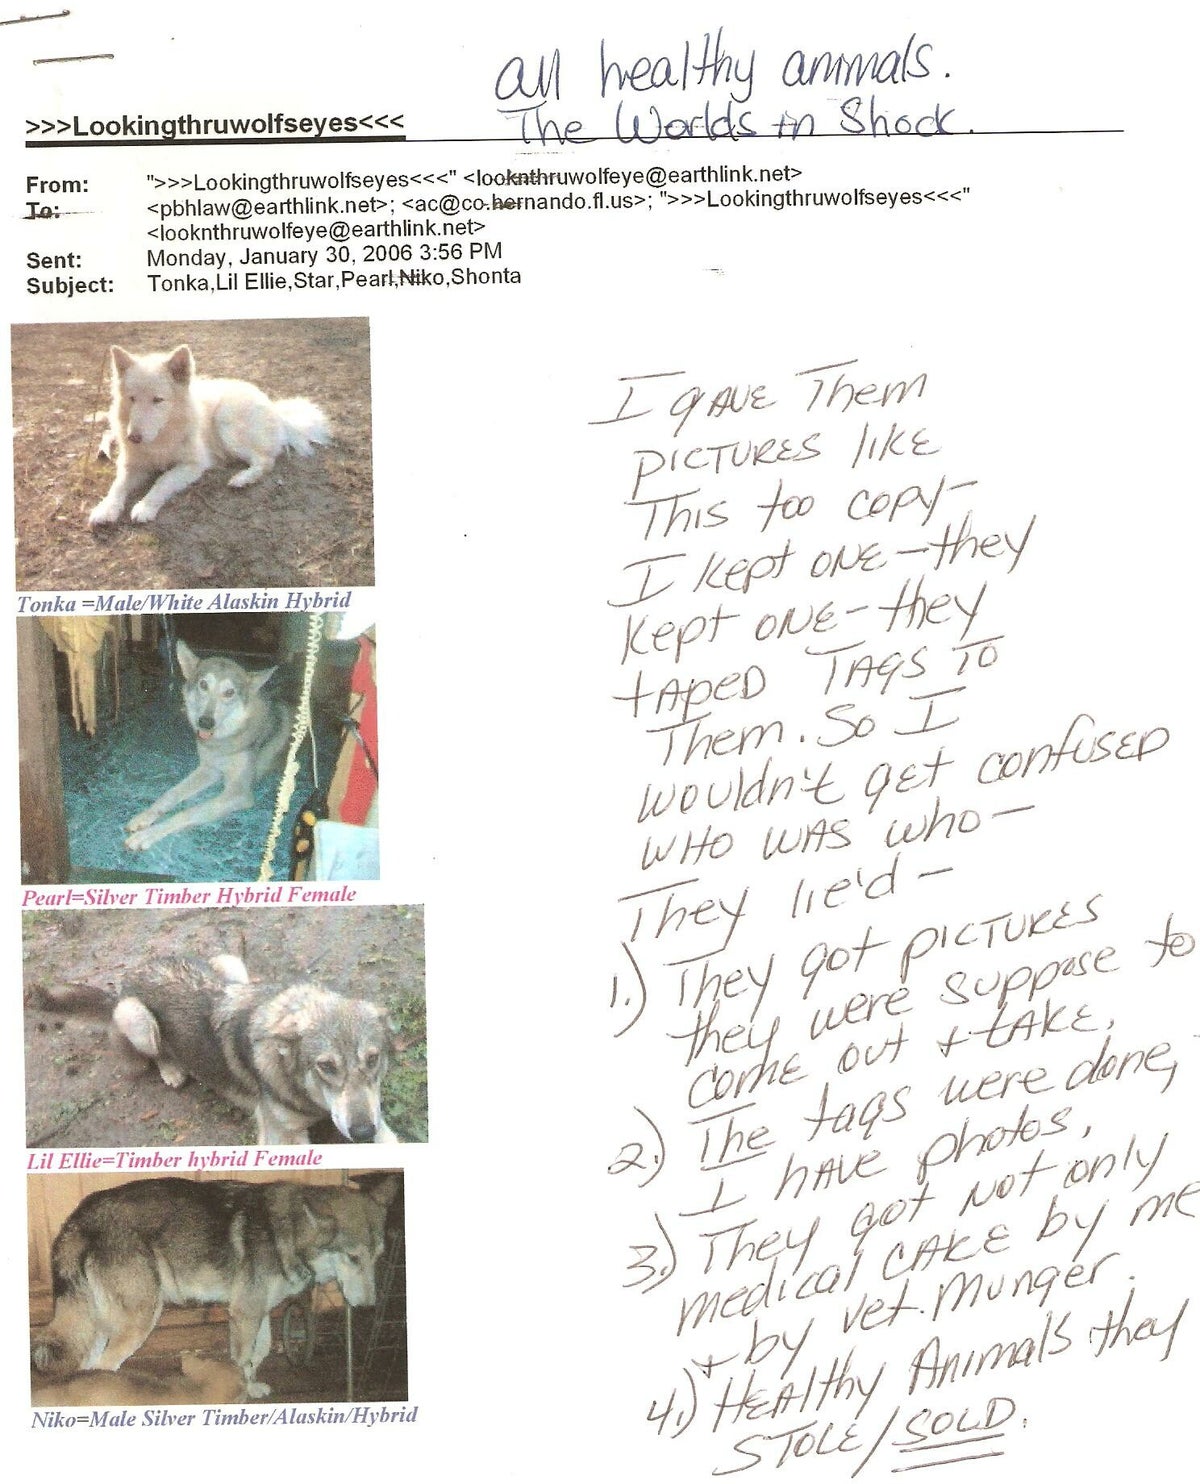 all healthy animals.
The Worlds in Shock.
>>>Lookingthruwolfseyes<<<
From: ">>>Lookingthruwolfseyes<<<" <looknthruwolfeye@earthlink.net>
To: <pbhlaw@earthlink.net>; <ac@co.hernando.fl.us>; ">>>Lookingthruwolfseyes<<<"
<looknthruwolfeye@earthlink.net>
Sent: Monday, January 30, 2006 3:56 PM
Subject: Tonka,Lil Ellie,Star,Pearl,Niko,Shonta
Tonka =Male/White Alaskin Hybrid
Pearl=Silver Timber Hybrid Female
Lil Ellie=Timber hybrid Female
Niko=Male Silver Timber/Alaskin/Hybrid
I gAVE Them
PICTURES liKE
This too copy-
I kept ONE-they
kept ONE-they
tAPED TAgS TO
Them. So I
wouldn't get confused
WHO WAS who-
They lie'd-
1.) They got PICTURES
they were suppose to
come out + tAKE.
2.) The tags were done,
I hAVE photos,
3.) They got Not only
medical CARE by me
+ by vet. Munger.
4.) HEAlthy Animals they
STOLE/SOLD.